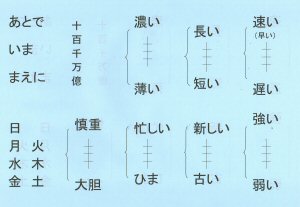 あとで
いま
まえに
十百千万億
濃い
薄い
長い
短い
速い
(早い)
遅い
日
月 火
水 木
金 土
慎重
大胆
忙しい
ひま
新しい
古い
強い
弱い